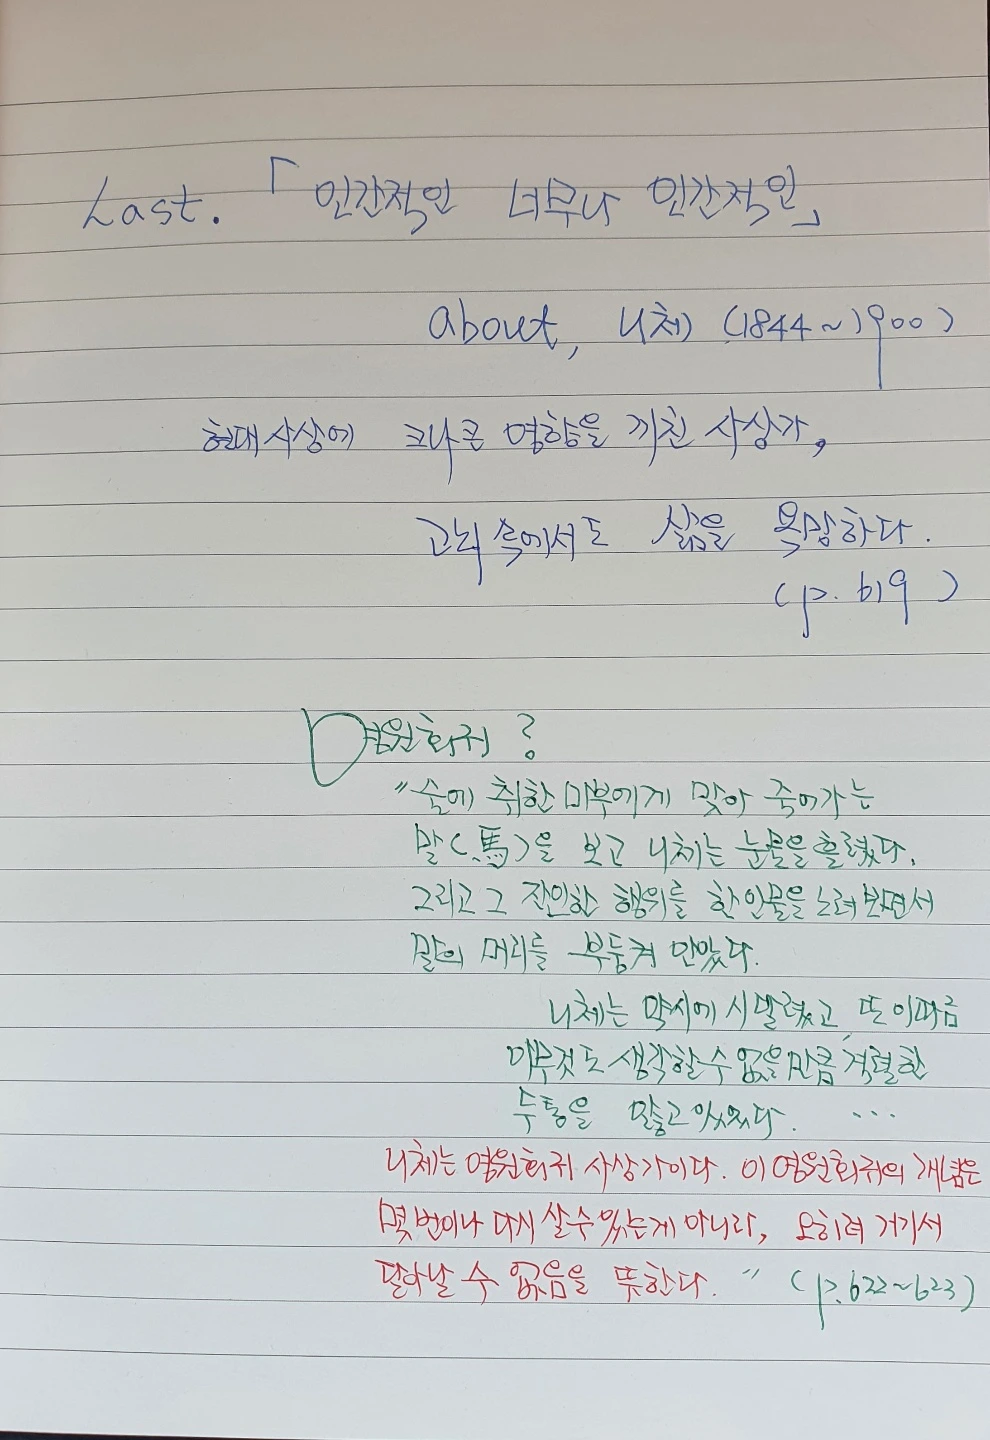 Last. 「인간적인 너무나 인간적인」
about, 니체 (1844~1900)
현대사상에 크나큰 영향을 끼친 사상가,
고뇌 속에서도 삶을 욕망하다.
(p. 619)
영원회귀?
"술에 취한 마부에게 맞아 죽어가는
말(馬)을 보고 니체는 눈물을 흘렸다.
그리고 그 잔인한 행위를 한 인물을 노려보면서
말의 머리를 부둥켜 안았다.
니체는 약시에 시달렸고, 또 이따금
아무것도 생각할 수 없을 만큼 격렬한
두통을 앓고 있었다. ...
니체는 영원회귀 사상가이다. 이 영원회귀의 개념은
몇 번이나 다시 살 수 있는게 아니라, 오히려 거기서
달아날 수 없음을 뜻한다." (p.622~623)